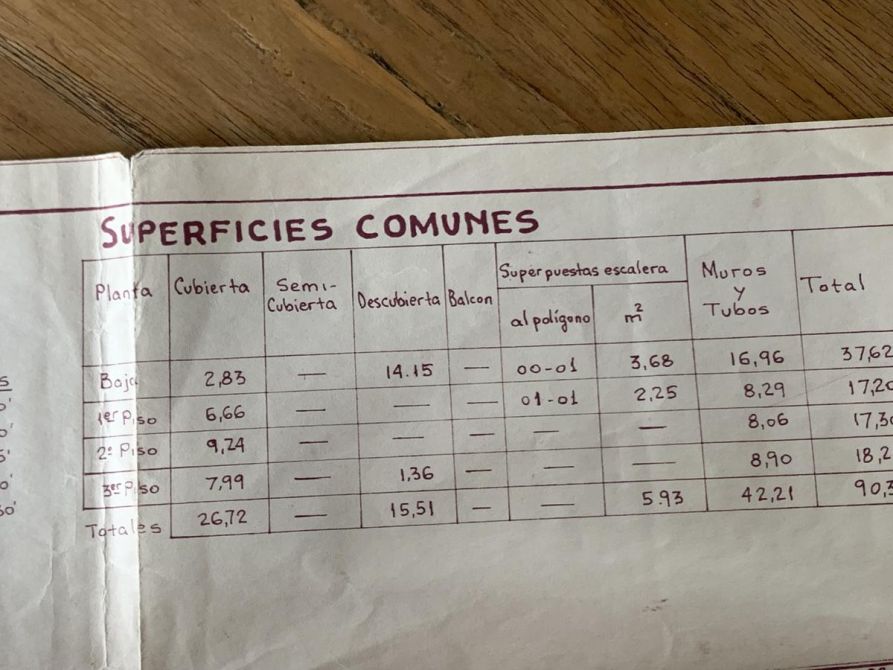 SUPERFICIES COMUNES
Planta Cubierta Semi-Cubierta Descubierta Balcon Superpuestas escalera al polígono m² Muros y Tubos Total
Baja 2,83 — 14.15 — 00-01 3,68 16,96 37,62
1er Piso 6,66 — — — 01-01 2,25 8,29 17,20
2º Piso 9,24 — — — — — 8,06 17,30
3er Piso 7,99 — 1,36 — — — 8,90 18,2
Totales 26,72 — 15,51 — — 5.93 42,21 90,3